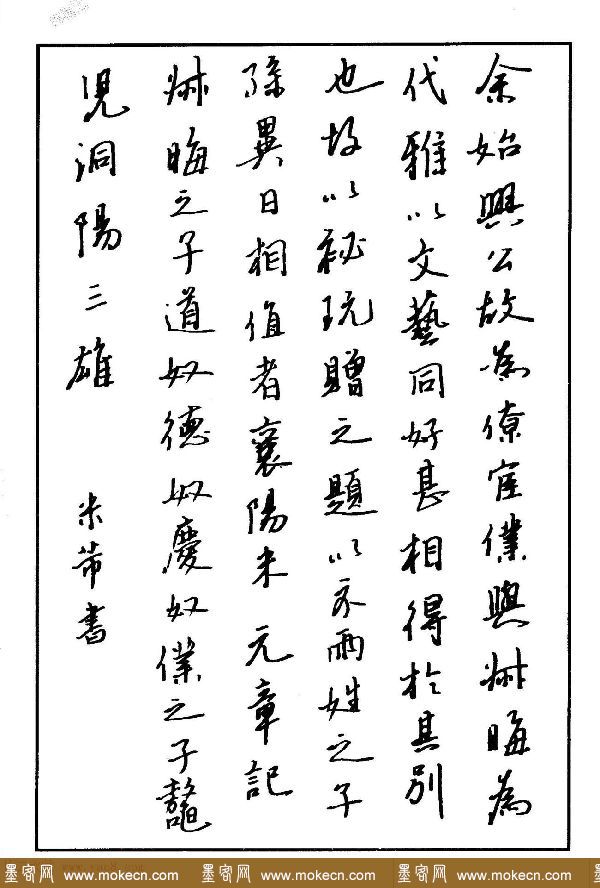 余始興公故為僚宦僕與叔晦為
代雅以文藝同好甚相得於其別
也故以秘玩贈之題以示兩姓之子
孫異日相值者襄陽米元章記
叔晦之子道奴德奴慶奴僕之子鼇
兒洞陽三雄 米芾書
墨客网 www.mokecn.com 墨客网 www.mokecn.com 墨客网 www.mokecn.com 墨客网 www.mokecn.com